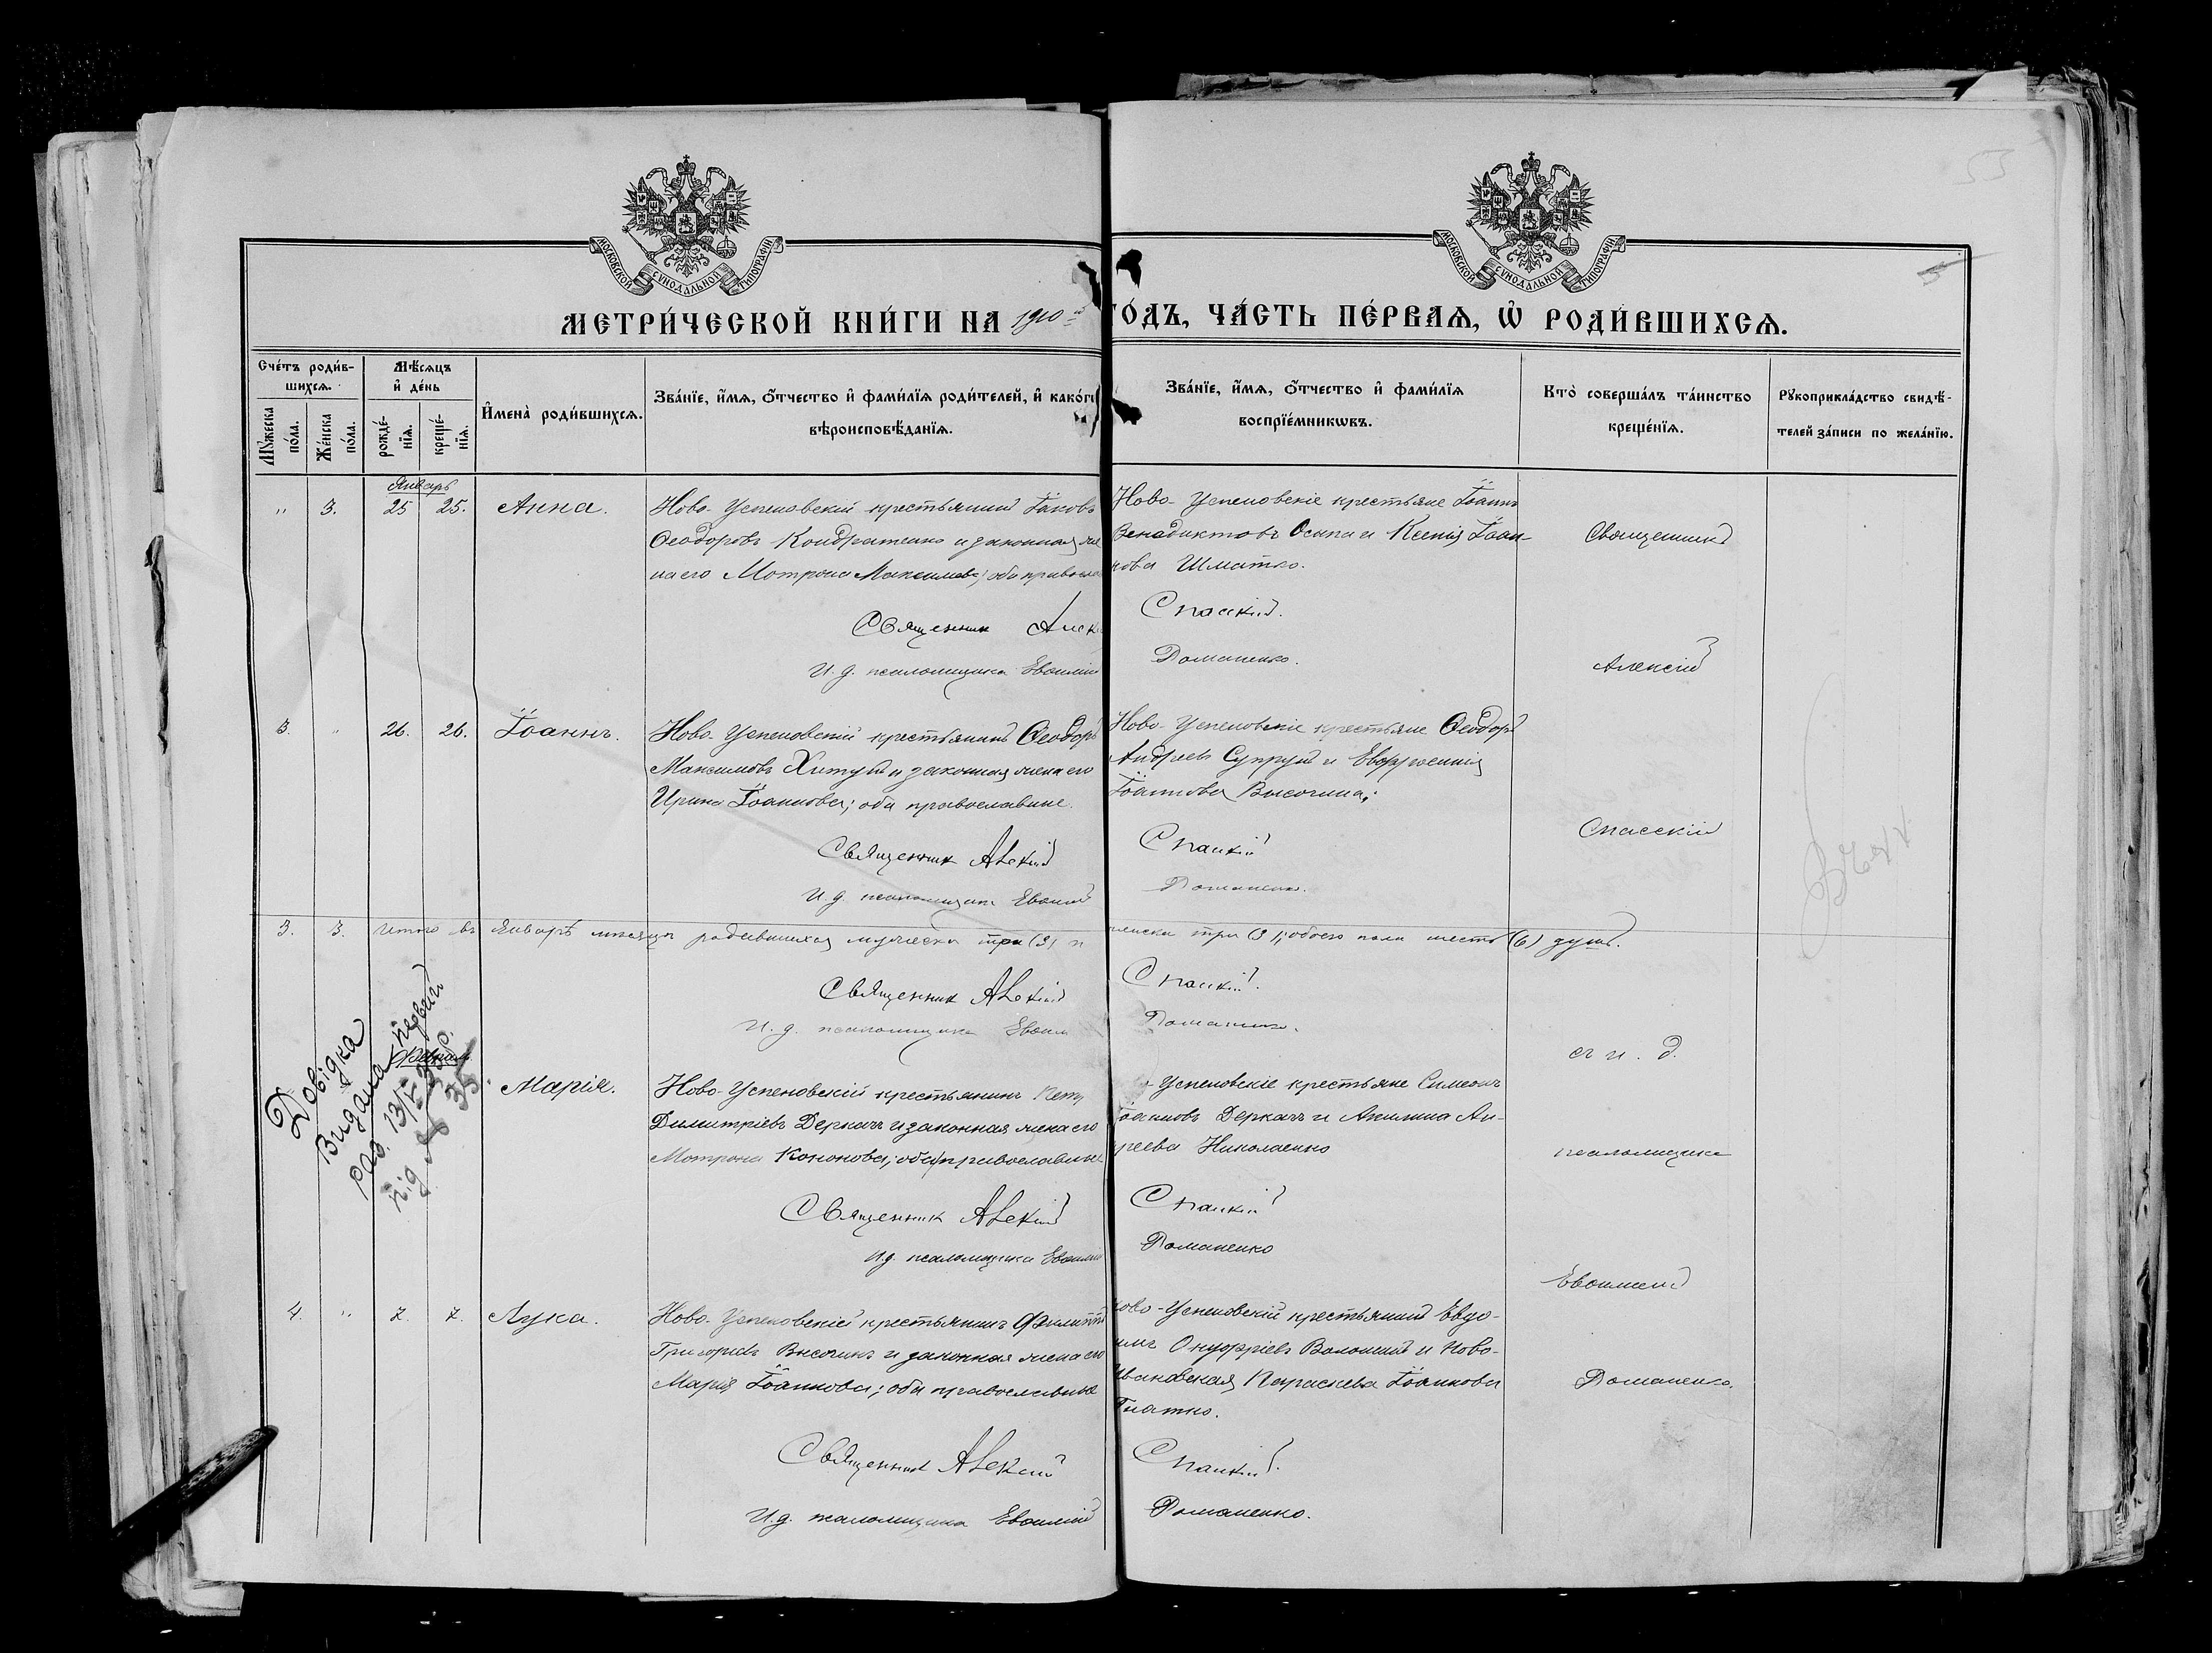 МОСКОВСКОЙ СѴНОДАЛЬНОЙ ТИПОГРАФІИ
МОСКОВСКОЙ СѴНОДАЛЬНОЙ ТИПОГРАФІИ
МЕТРИ́ЧЕСКОЙ КНИ́ГИ НА 1910й
ГО́ДЪ, ЧА́СТЬ ПЕ́РВАѦ, Ѡ҆ РОДИ́ВШИХСѦ.
Сче́тъ роди́в-
шихсѧ.
Мꙋ́жеска по́ла.
Же́нска по́ла.
Мѣ́сѧцъ
и҆ де́нь
рожде́-
нїѧ.
креще́-
нїѧ.
И҆мена̀ роди́вшихсѧ.
Зва́нїе, и҆́мѧ, ѻ҆́тчество и҆ фами́лїѧ роди́телей, и҆ како́гѡ
вѣроисповѣ́данїѧ.
Зва́нїе, и҆́мѧ, ѻ҆́тчество и҆ фами́лїѧ
воспрїе́мникѡвъ.
Кто̀ соверша́лъ та́инство
креще́нїѧ.
Рꙋкоприкла́дство свидѣ́-
телей за́писи по жела́нїю.
Январь
" 3. 25 25. Анна.
Ново-Успеновскій крестьянинъ Іаковъ
Ѳеодоровъ Кондратенко и законная же
на его Мотрона Максимова; оба правосла
Священник Алек
И. д. псаломщика Евѳимій
Ново-Успеновскіе крестьяне Іоаннъ
Венадиктовъ Осыпа и Ксенія Іоан-
нова Шматко.
Спасскій.
Романенко.
Священникъ
Алексій
3. " 26. 26. Іоаннъ.
Ново-Успеновскій крестьянинъ Ѳеодоръ
Максимовъ и законная жена его
Ирина Іоаннова; оба православные.
Священник Алексій
И. д. псаломщика Евѳимій
Ново-Успеновскіе крестьяне Ѳеодоръ
Андреевъ Супрунъ и Евфросинія
Іоаннова Высочина;
Спасскій
Романенко.
Спасскій
3. 3. Итого въ Январѣ мѣсяцѣ родившихся мужеска три (3) и
женска три (3); обоего пола шесть (6) душъ.
Священник Алексій
И. д. псаломщика Евѳим
Спасскій.
Романенко.
си. д.
Довідка
видана
13/
під № 35
Марія.
Ново-Успеновскій крестьянинъ Петр
Димитріевъ Деркачъ и законная жена его
Мотрона Кононова; оба православные
Священник Алексій
И. д. псаломщика Евѳимій
Успеновскіе крестьяне Симеонъ
Іоанновъ Деркачъ и Акилина Ан-
дреева Николаенко
Спасскій
Романенко
псаломщика
Евѳимій
4. " 7. 7. Лука.
Ново-Успеновскій крестьянинъ Филиппъ
Григорьевъ Высочинъ и законная жена его
Марія Іоаннова; оба православные
Священник Алексій
И. д. псаломщика Евѳимій
Ново-Успеновскій крестьянинъ Евдо-
кимъ Онуфріевъ Волошинъ и Ново-
Ивановская Параскева Іоаннова
Гнатко.
Спасскій.
Романенко.
Романенко.